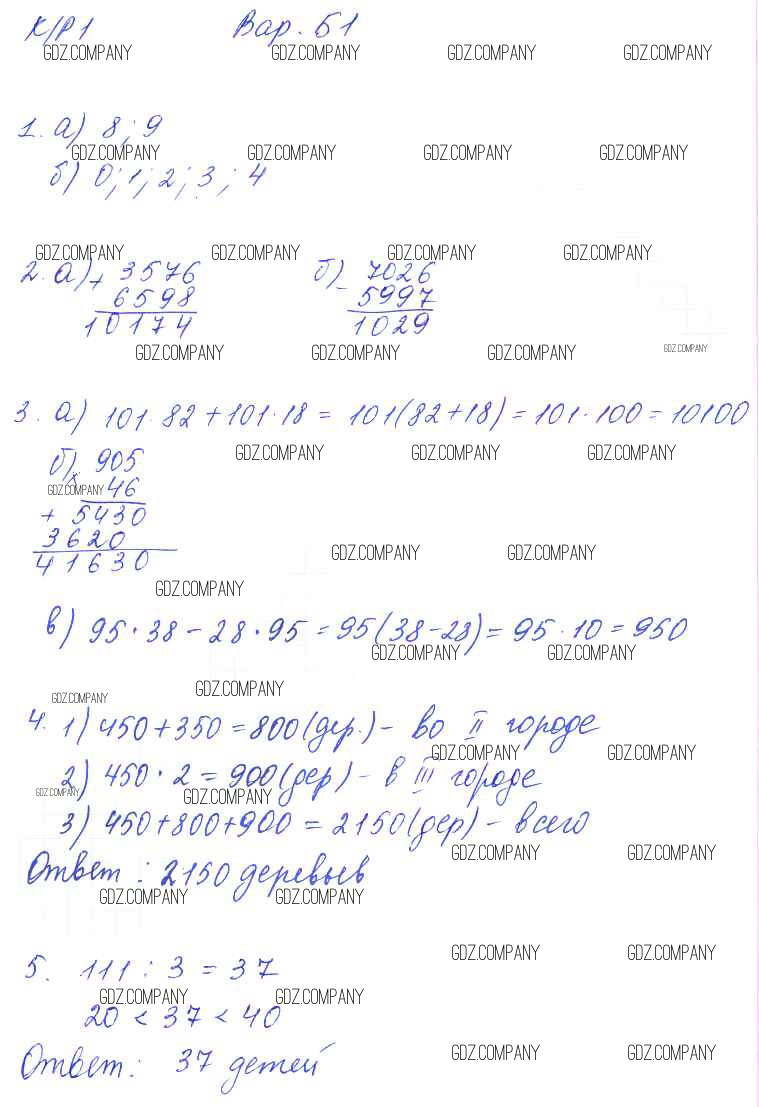 К/Р1 Вар. Б1
GDZ.COMPANY GDZ.COMPANY GDZ.COMPANY GDZ.COMPANY
1. а) 8; 9
GDZ.COMPANY GDZ.COMPANY GDZ.COMPANY GDZ.COMPANY
б) 0; 1; 2; 3; 4
GDZ.COMPANY GDZ.COMPANY GDZ.COMPANY GDZ.COMPANY
2. а) + 3576 б) - 7026
6598 5997
10174 1029
GDZ.COMPANY GDZ.COMPANY GDZ.COMPANY GDZ.COMPANY
3. а) 101·82+101·18 = 101(82+18) = 101·100 = 10100
GDZ.COMPANY GDZ.COMPANY GDZ.COMPANY
б) x 905
GDZ.COMPANY 46
+ 5430
3620
41630
GDZ.COMPANY GDZ.COMPANY
GDZ.COMPANY
в) 95·38-28·95 = 95(38-28) = 95·10 = 950
GDZ.COMPANY GDZ.COMPANY
GDZ.COMPANY GDZ.COMPANY
4. 1) 450+350 = 800(дер.) - во II городе
GDZ.COMPANY GDZ.COMPANY
2) 450·2 = 900(дер) - в III городе
GDZ.COMPANY GDZ.COMPANY
3) 450+800+900 = 2150(дер) - всего
GDZ.COMPANY GDZ.COMPANY
Ответ: 2150 деревьев
GDZ.COMPANY GDZ.COMPANY
GDZ.COMPANY GDZ.COMPANY
5. 111 : 3 = 37
GDZ.COMPANY GDZ.COMPANY
20 < 37 < 40
GDZ.COMPANY GDZ.COMPANY
Ответ: 37 детей